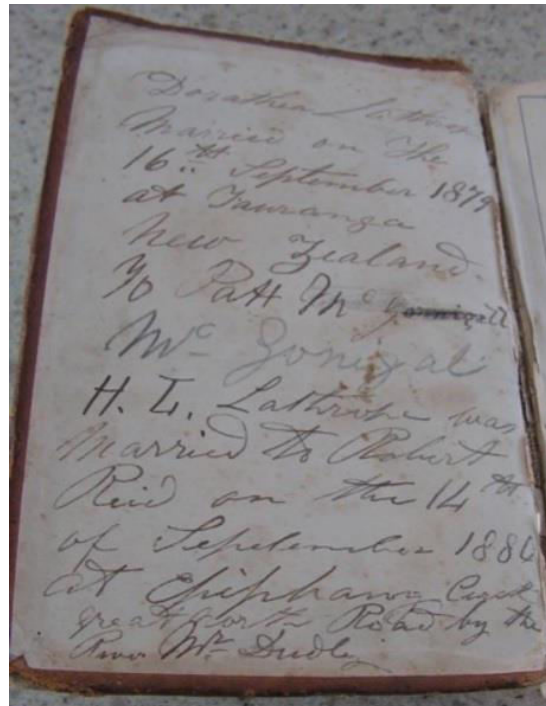 Dorathea Lathrop
Married on The
16th September 1879
at Tauranga
New Zealand.
To Patt Mc Gonnigall
Mc Gonigal
H. L. Lathrope was
Married to Robert
Reid on the 14th
of September 1886
at Epiphany
great North Road by the
Revr Mr Dudley